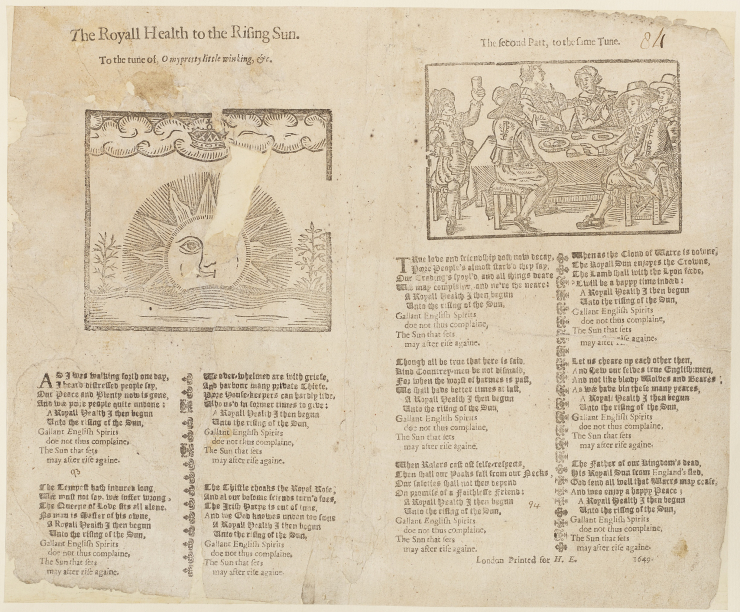 The Royall Health to the Rising Sun.
To the tune of, O my pretty little winking, &c.
AS I was walking forth one day,
I heard distressed people say,
Our Peace and Plenty now is gone,
And wee poore people quite undone:
A Royall Health I then begun
Unto the rising of the Sun,
Gallant English Spirits
doe not thus complaine,
The Sun that sets
may after rise againe.
The Tempest hath indured long,
We must not say, we suffer wrong,
The Queene of Love sits all alone,
No man is Master of his owne,
A Royall Health I then begun
Unto the rising of the Sun,
Gallant English Spirits
doe not thus complaine,
The Sun that sets
may after rise againe.
We over-whelmed are with griefe,
And harbour many private Thiefe,
Poore House-keepers can hardly live,
Who us'd in former times to give:
A Royall Health I then begun
Unto the rising of the Sun,
Gallant English Spirits
doe not thus complaine,
The Sun that sets
may after rise againe.
The Thistle choaks the Royal Rose,
And all our bosome friends turn'd foes,
The Irish Harpe is out of tune,
And we God knowes undon too soone
A Royall Health I then begun
Unto the rising of the Sun,
Gallant English Spirits
doe not thus complaine,
The Sun that sets
may after rise againe.
The second Part, to the same Tune.
84
TRue love and friendship doth now decay,
Poore People's almost starv'd they say,
Our Trading's spoyl'd, and all things deare
We may complaine, and ne're the neare:
A Royall Health I then begun
Unto the rising of the Sun,
Gallant English Spirits
doe not thus complaine,
The Sun that sets
may after rise againe.
Though all be true that here is said,
Kind Countrey-men be not dismaid,
For when the worst of harmes is past,
We shall have better times at last,
A Royall Health I then begun
Unto the rising of the Sun,
Gallant English Spirits
doe not thus complaine,
The Sun that sets
may after rise againe.
When Rulers cast off
Then shall our Yoaks fall from our Necks
Our safeties shall not then depend
On promise of a Faithlesse Friend:
A Royall Health I then begun
Unto the rising of the Sun,
Gallant English Spirits
doe not thus complaine,
The Sun that sets
may after rise againe.
94
When as the Cloud of Warre is downe,
The Royall Sun enjoyes the Crowne,
The Lamb shall with the Lyon feede,
'Twill be a happy time indeed:
A Royall Health I then begun
Unto the rising of the Sun,
Gallant English Spirits
doe not thus complaine,
The Sun that sets
may after rise againe.
Let us cheare up each other then,
And shew our selves true English-men,
And not like bloody Wolves and Beares
As we have bin these many yeares,
A Royall Health I then begun
Unto the rising of the Sun,
Gallant English Spirits
doe not thus complaine,
The Sun that sets
may after rise againe.
The Father of our Kingdom's dead,
His Royall Sun from England's fled,
God send all well that Warres may cease,
And wee enjoy a happy Peace:
A Royall Health I then begun
Unto the rising of the Sun,
Gallant English Spirits
doe not thus complaine,
The Sun that sets
may after rise againe.
London Printed for H. E. 1649.